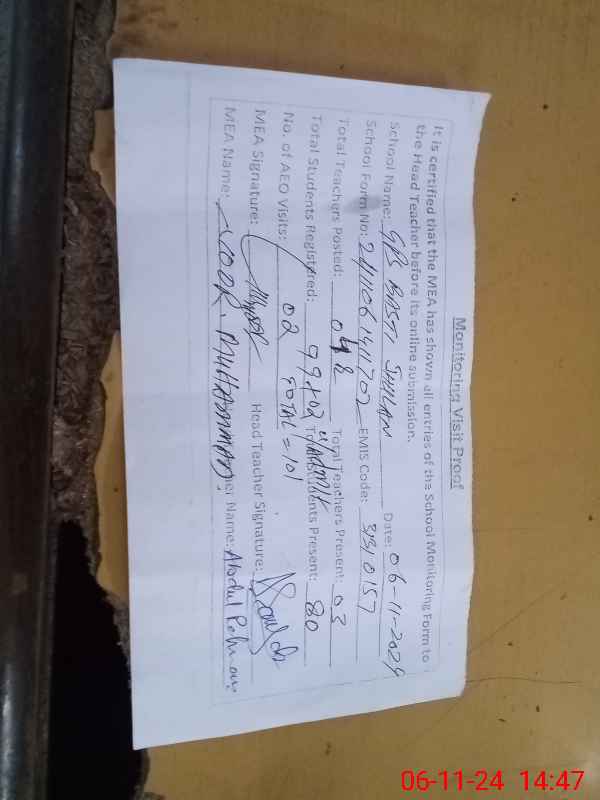 Monitoring Visit Proof
It is certified that the MEA has shown all entries of the School Monitoring Form to
the Head Teacher before its online submission.
School Name: GPS BASTI JHULAN Date: 06-11-2024
School Form No: EMIS Code: 31310157
Total Teachers Posted: Total Teachers Present: 03
Total Students Registered: 99+02 Total Students Present: 80
No. of AEO Visits: 02 TOTAL = 101
MEA Signature: Head Teacher Signature:
MEA Name: NOOR MUHAMMAD. Name: Abdul Rehman
06-11-24 14:47